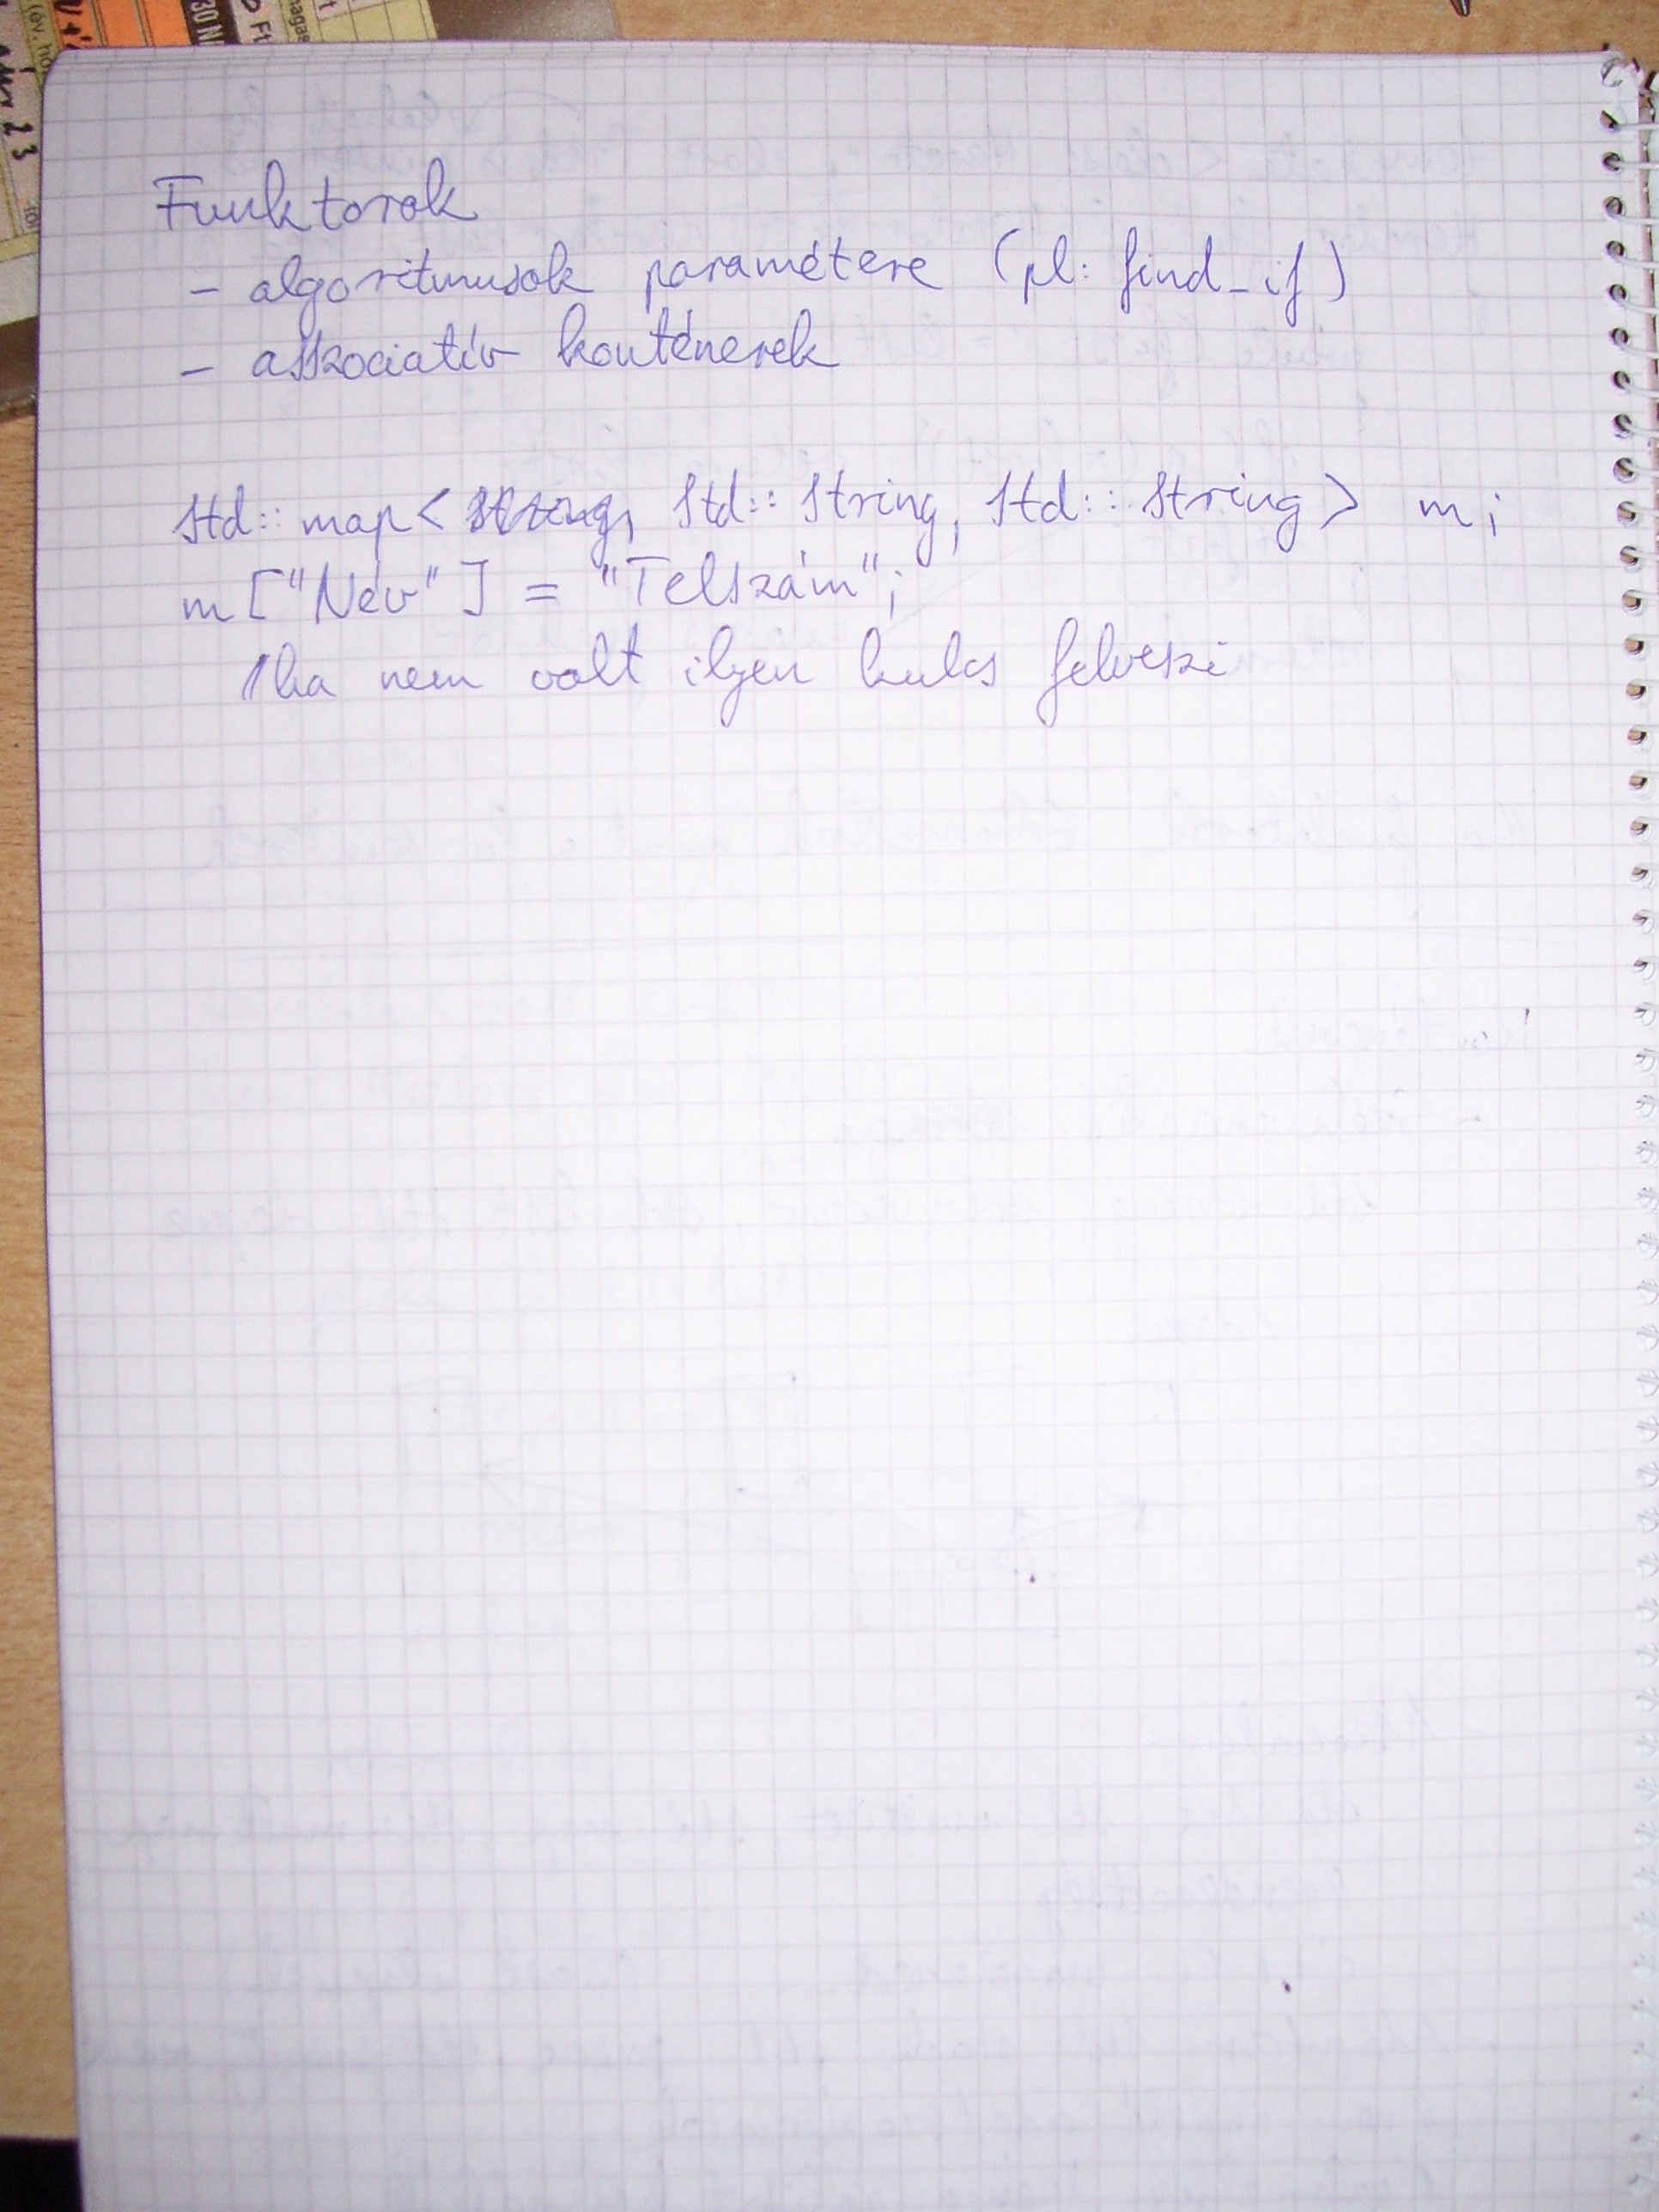 Funktorok
- algoritmusok paramétere (pl: find_if)
- asszociatív konténerek
std::map< std::string, std::string > m;
m["Név"] = "Telszám";
ha nem volt ilyen kulcs felveszi